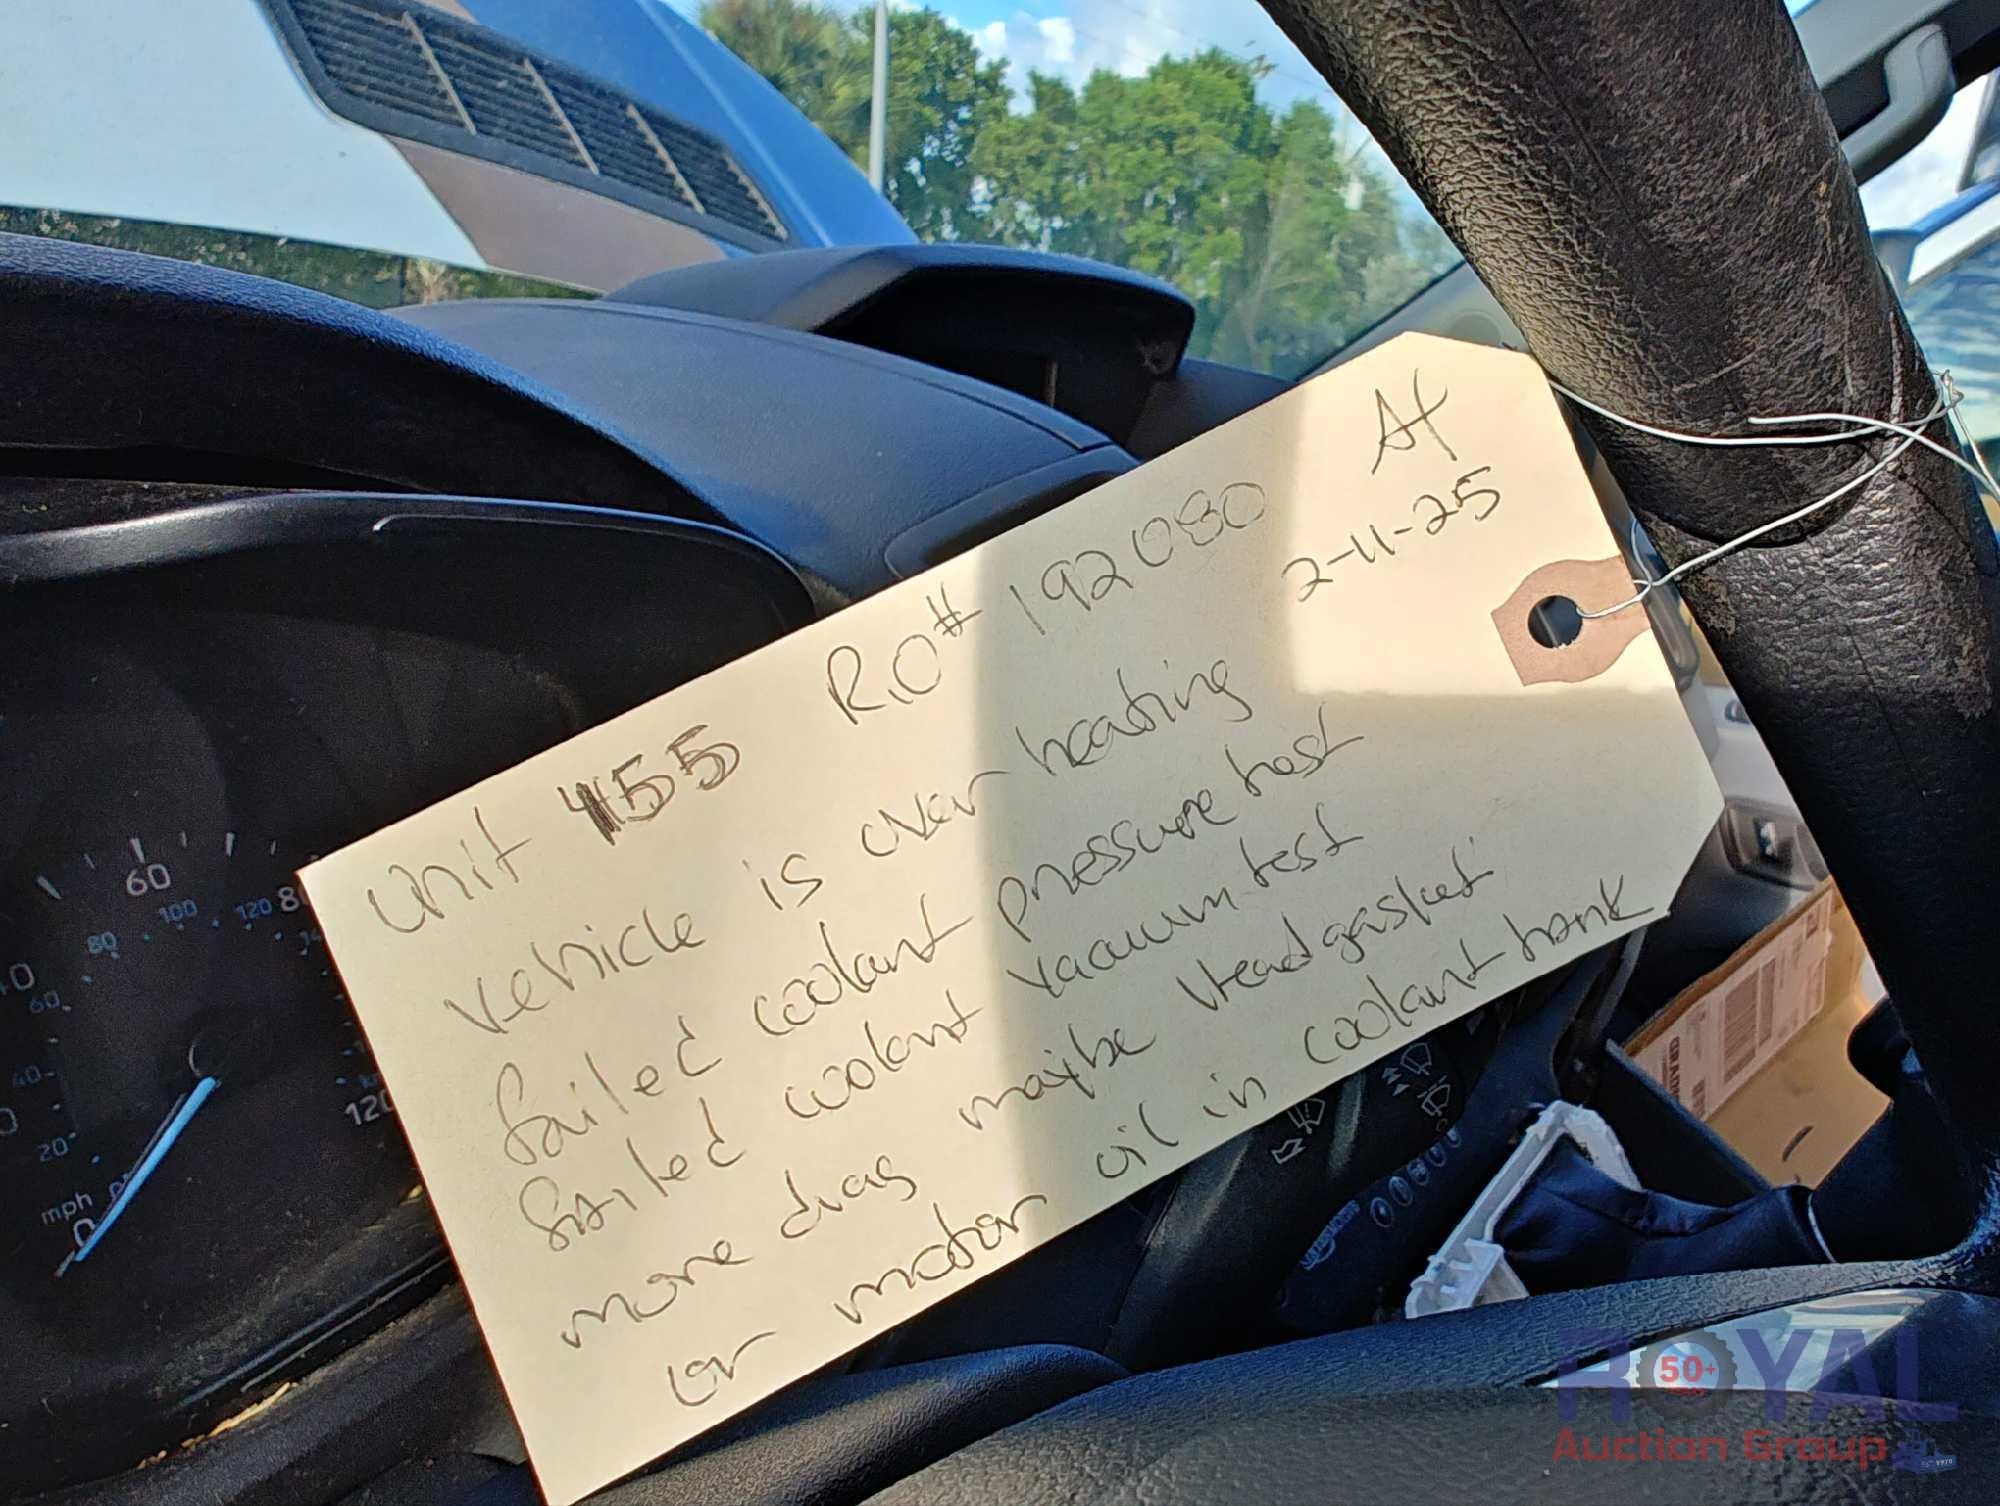 At
2-11-25
Unit 455 R.O# 192080
vehicle is over heating
failed coolant pressure test
failed coolant vacuum test
more diag maybe Head gasket
or motor oil in coolant tank
60
80 100 120 80
60
40
20
120
mph
0
ROYAL
50+
Auction Group
EST 1970